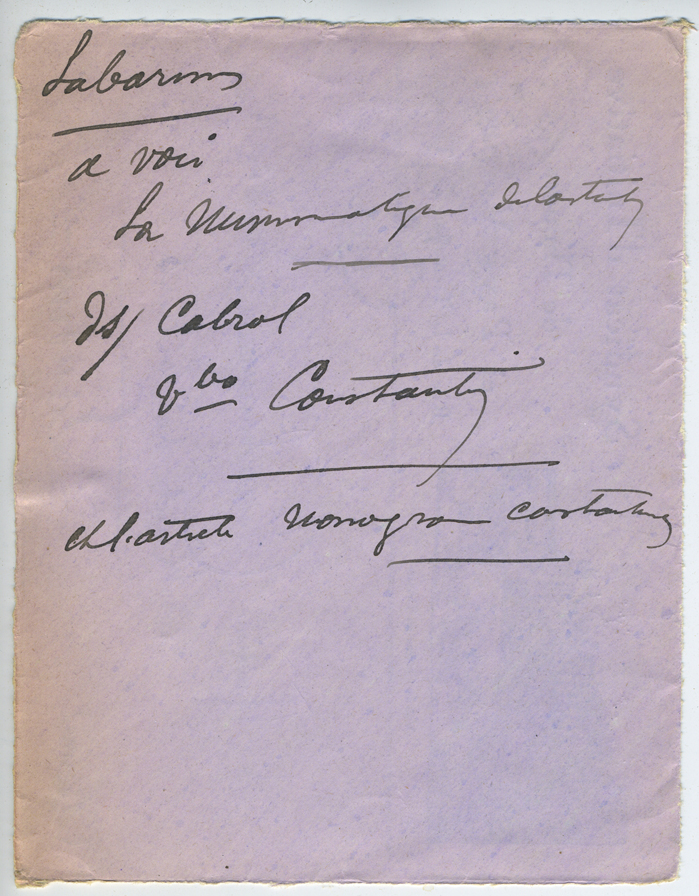 Labarum
a voir
La Numismatique
ds/ Cabrol
vbo Constantin
et l'article monogram constantin